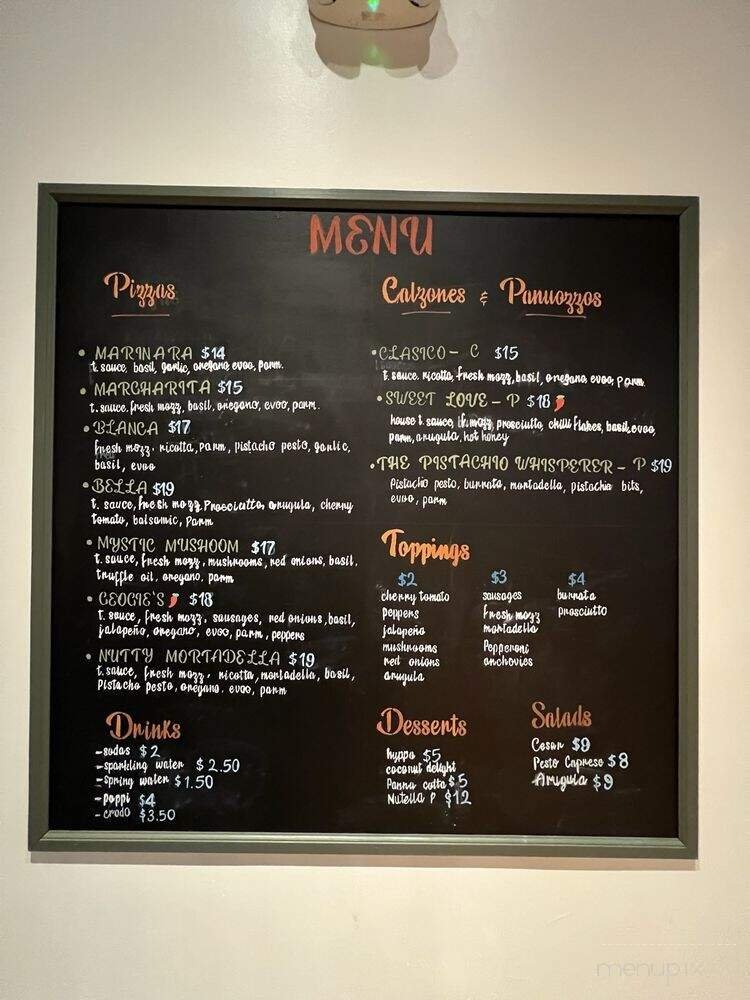 MENU
Pizzas
• MARINARA $14
t. sauce, basil, garlic, oregano, evoo, parm.
• MARGHARITA $15
t. sauce, fresh mozz, basil, oregano, evoo, parm.
• BLANCA $17
fresh mozz. ricotta, parm, pistacho pesto, garlic,
basil, evoo
• BELLA $19
t. sauce, fresh mozz, Prosciutto, arugula, cherry
tomato, balsamic, parm
• MYSTIC MUSHOOM $17
t. sauce, fresh mozz, mushrooms, red onions, basil.
truffle oil, oregano, parm
• GEOGIE'S 🌶 $18
t. sauce, fresh mozz, sausages, red onions, basil,
jalapeño, oregano, evoo, parm, peppers
• NUTTY MORTADELLA $19
t. sauce, fresh mozz, ricotta, mortadella, basil,
Pistacho pesto, oregano. evoo, parm
Drinks
- sodas $2
- sparkling water $2.50
- spring water $1.50
- poppi $4
- crodo $3.50
Calzones & Panuozzos
• CLASICO - C $15
t. sauce. ricotta, fresh mozz, basil, oregano, evoo, parm.
• SWEET LOVE - P $18 🌶
house t. sauce, mozz, prosciutto, chilli flakes, basil, evoo,
parm, arugula, hot honey
• THE PISTACHIO WHISPERER - P $19
Pistachio pesto, burrata, mortadella, pistachio bits,
evoo, parm
Toppings
$2
cherry tomato
peppers
jalapeño
mushrooms
red onions
arugula
$3
sausages
fresh mozz
mortadella
Pepperoni
anchovies
$4
burrata
prosciutto
Desserts
hyppo $5
coconut delight
Panna cotta $5
Nutella P $12
Salads
Cesar $9
Pesto Caprese $8
Arugula $9
menupix